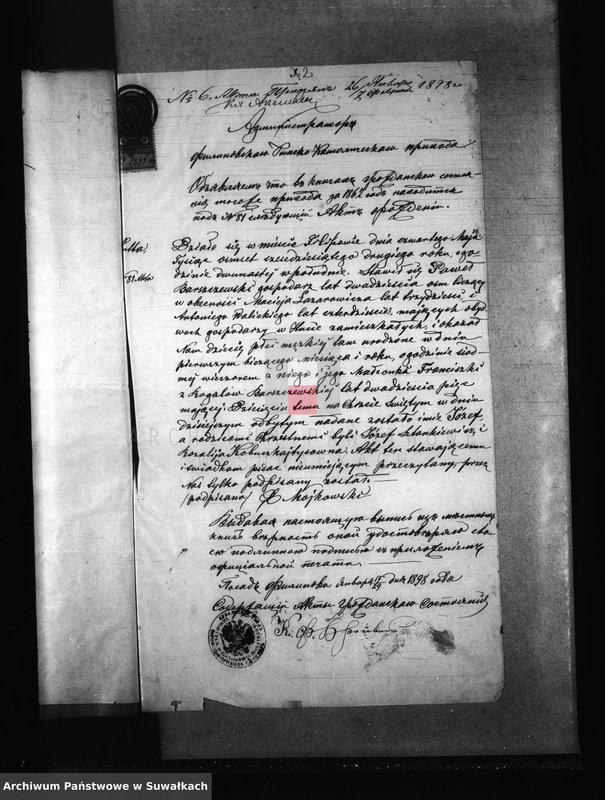 № 6. Акта
26 Января 1898 г.
7 Февраля
Администраторъ
Филиповского Римско-Католическаго прихода
Объявляетъ что въ книгахъ гражданскаго состоя-
нія тогоже прихода за 1862 годъ находится
подъ № 81 слѣдующій Актъ рожденія.
Działo się w mieście Filipowie dnia czwartego Maja
Tysiąc ośmset sześćdziesiątego drugiego roku, ogo-
dzinie dwunastej wpołudnie. Stawił się Paweł
Barszczewski gospodarz lat dwadzieścia ośm liczący
w obecności Macieja Lazarowicza lat trzydzieści i
Antoniego Halickiego lat czterdzieści, mających obyd-
woch gospodarzy w Hucie zamieszkałych, i okazał
Nam dziecię płci męzkiej tam urodzone w dniu
pierwszym bieżącego miesiąca i roku, ogodzinie siód-
mej wieczorem z niego i jego Małżonki Franciszki
z Rogalów Barszczewskiej lat dwadzieścia pięć
mającej Dziecięciu temu na Chrzcie Świętym w dniu
dzisiejszym odbytym nadane zostało imie Józef,
a rodzicami Chrzestnemi byli Józef Stankiewicz i
Rozalija. Akt ten stawającemu
i świadkom pisać nieumiejącym przeczytany, przez
Nas tylko podpisany został.
(podpisano) X Majkowski
Выдавая настоящую выпись изъ мѣстныхъ
книгъ вѣрность оной удостовѣряю сво-
ею подлинною подписью съ приложеніемъ
официальной печати.
Посадъ Филипово Января дня 1898 года
Содержащій Акты Гражданскаго Состоянія
Archiwum Państwowe w Suwałkach